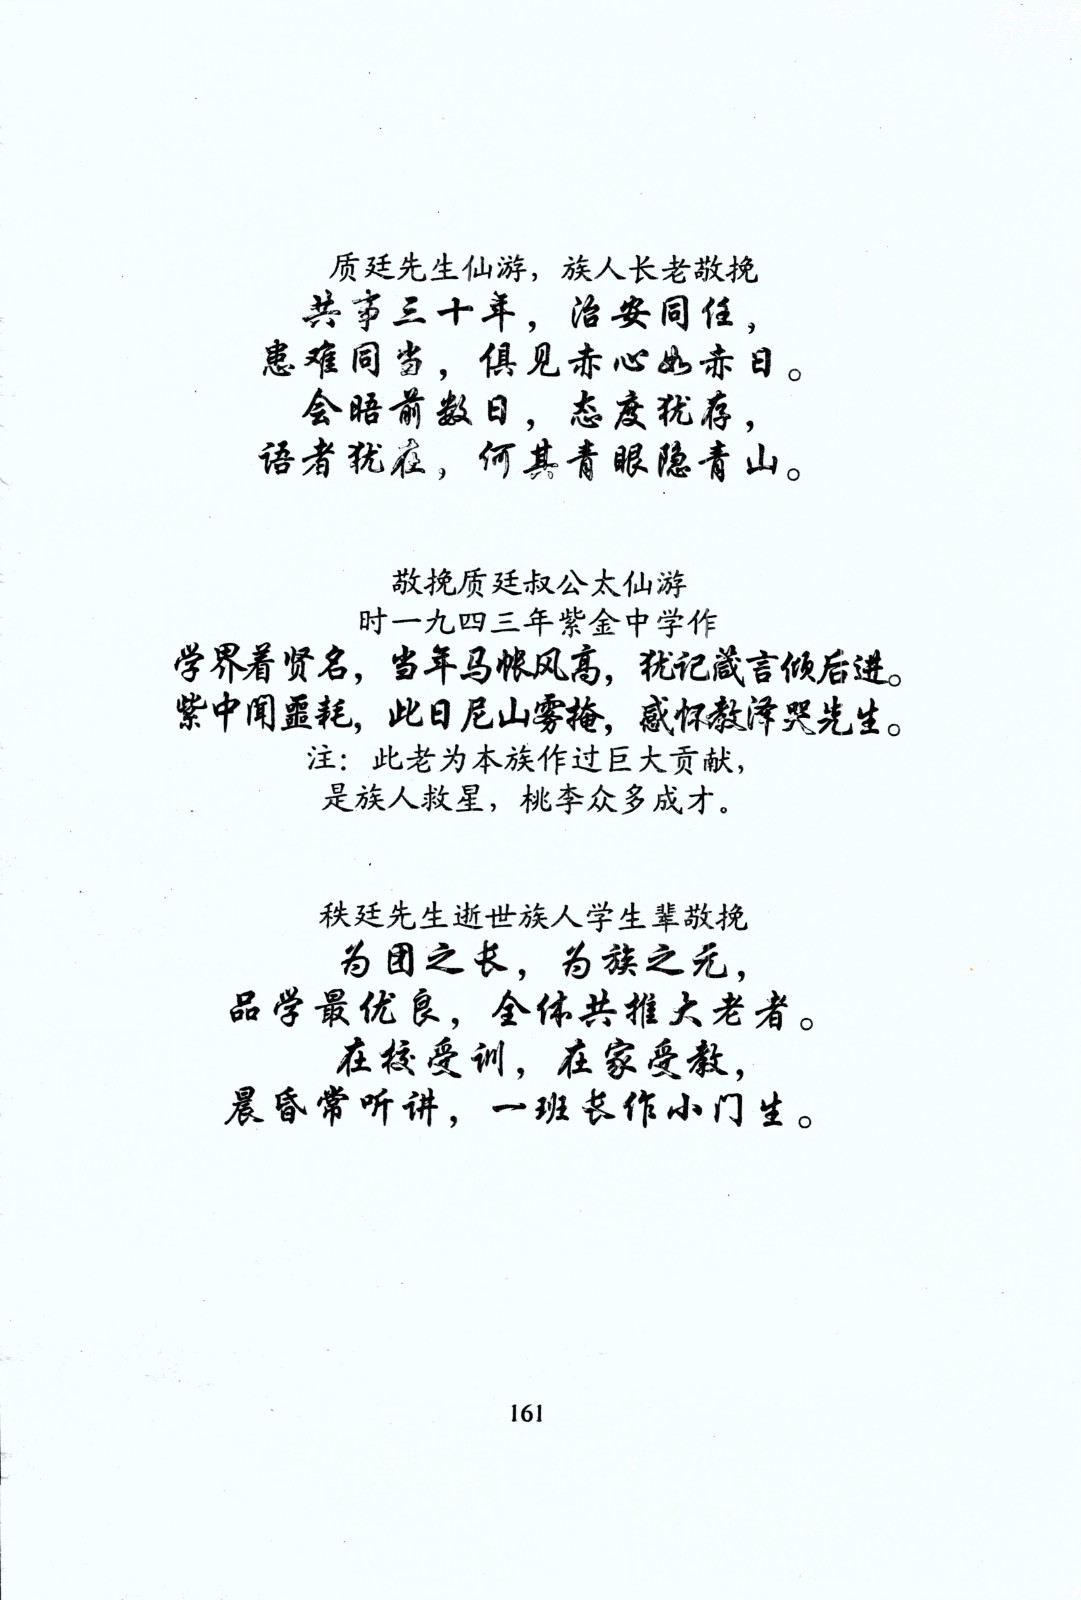 质廷先生仙游，族人长老敬挽
共事三十年，治安同任，
患难同当，俱见赤心如赤日。
会晤前数日，态度犹存，
语者犹在，何其青眼隐青山。
敬挽质廷叔公太仙游
时一九四三年紫金中学作
学界着贤名，当年马帐风高，犹记箴言倾后进。
紫中闻噩耗，此日尼山雾掩，感怀教泽哭先生。
注：此老为本族作过巨大贡献，
是族人救星，桃李众多成才。
秩廷先生逝世族人学生辈敬挽
为团之长，为族之元，
品学最优良，全体共推大老者。
在校受训，在家受教，
晨昏常听讲，一班长作小门生。
161